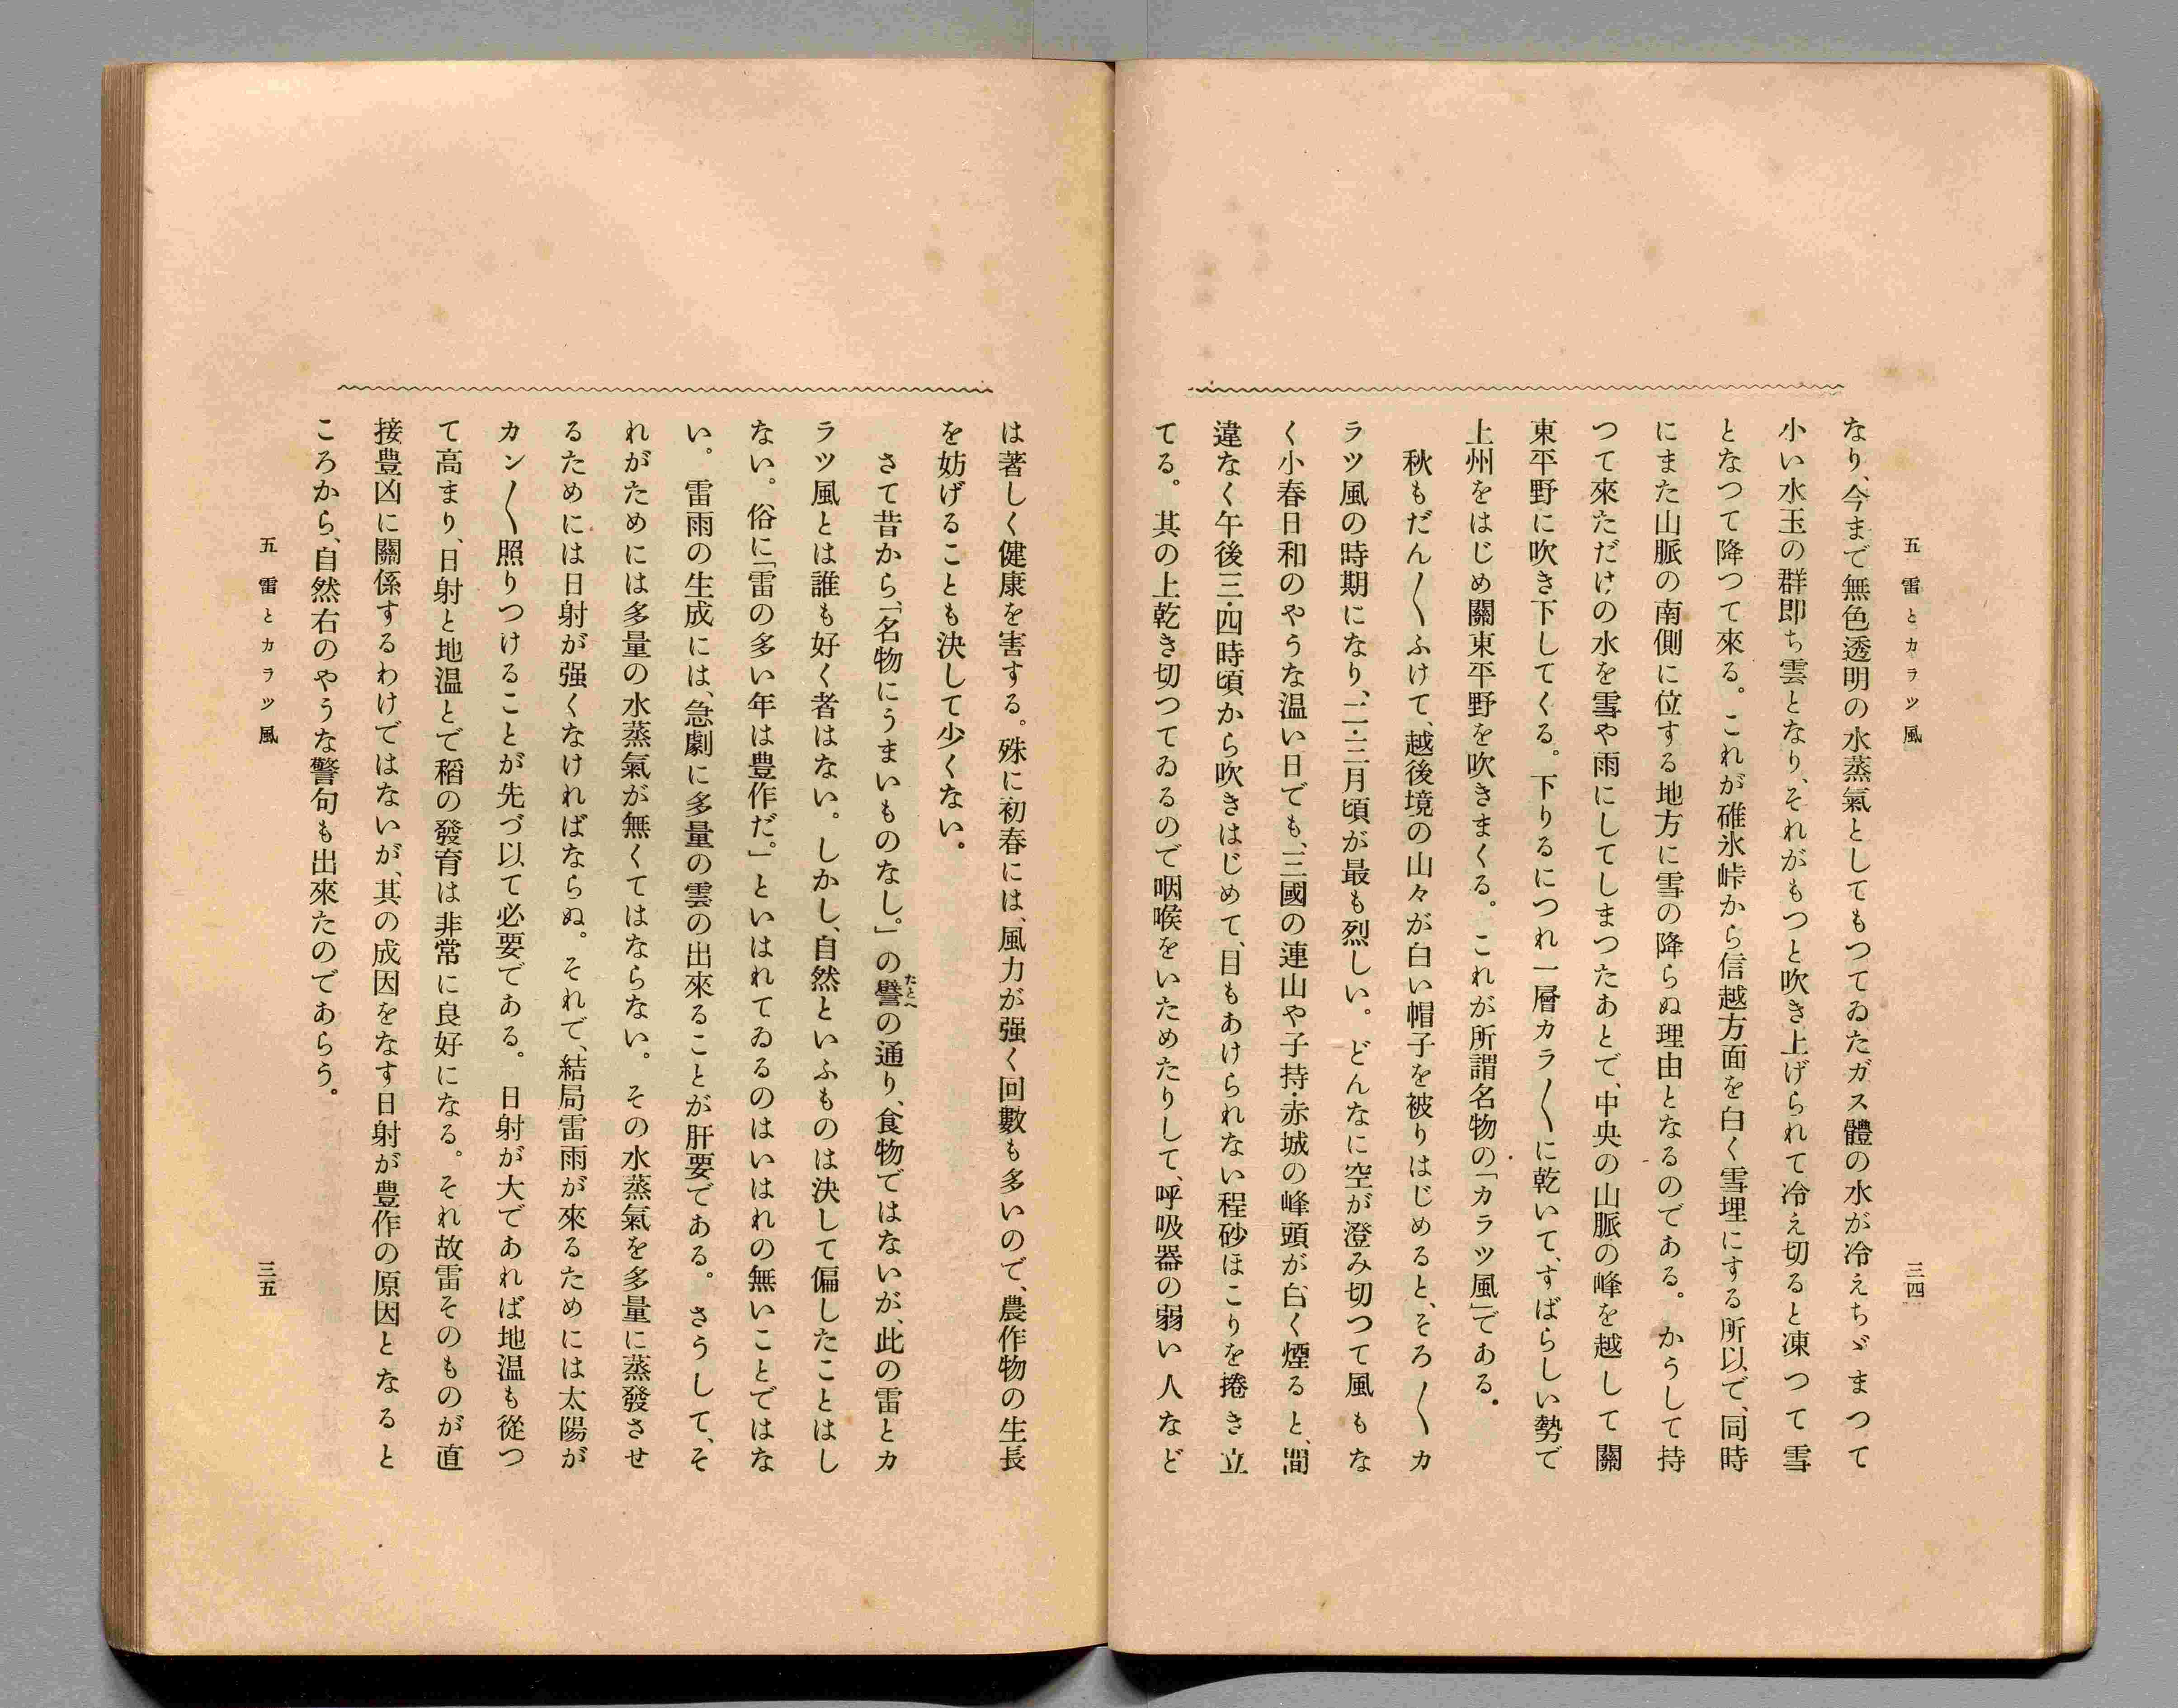 五 雷とカラツ風
三四
なり、今まで無色透明の水蒸氣としてもつてゐたガス體の水が冷えちゞまつて
小い水玉の群即ち雲となり、それがもつと吹き上げられて冷え切ると凍つて雪
となつて降つて來る。これが碓氷峠から信越方面を白く雪埋にする所以で、同時
にまた山脈の南側に位する地方に雪の降らぬ理由となるのである。かうして持
つて來ただけの水を雪や雨にしてしまつたあとで、中央の山脈の峰を越して關
東平野に吹き下してくる。下りるにつれ一層カラ〱に乾いて、すばらしい勢で
上州をはじめ關東平野を吹きまくる。これが所謂名物の「カラツ風」である。
秋もだん〱ふけて、越後境の山々が白い帽子を被りはじめると、そろ〱カ
ラツ風の時期になり、二・三月頃が最も烈しい。どんなに空が澄み切つて風もな
く小春日和のやうな温い日でも、三國の連山や子持・赤城の峰頭が白く煙ると、間
違なく午後三・四時頃から吹きはじめて、目もあけられない程砂ほこりを捲き立
てる。其の上乾き切つてゐるので咽喉をいためたりして、呼吸器の弱い人など
は著しく健康を害する。殊に初春には、風力が强く回數も多いので、農作物の生長
を妨げることも決して少くない。
さて昔から「名物にうまいものなし。」の譬たとへの通り、食物ではないが、此の雷とカ
ラツ風とは誰も好く者はない。しかし、自然といふものは決して偏したことはし
ない。俗に「雷の多い年は豊作だ。」といはれてゐるのはいはれの無いことではな
い。雷雨の生成には、急劇に多量の雲の出來ることが肝要である。さうして、そ
れがためには多量の水蒸氣が無くてはならない。その水蒸氣を多量に蒸發させ
るためには日射が强くなければならぬ。それで、結局雷雨が來るためには太陽が
カン〱照りつけることが先づ以て必要である。日射が大であれば地温も從つ
て高まり、日射と地温とで稻の發育は非常に良好になる。それ故雷そのものが直
接豊凶に關係するわけではないが、其の成因をなす日射が豊作の原因となると
ころから、自然右のやうな警句も出來たのであらう。
五 雷とカラツ風
三五